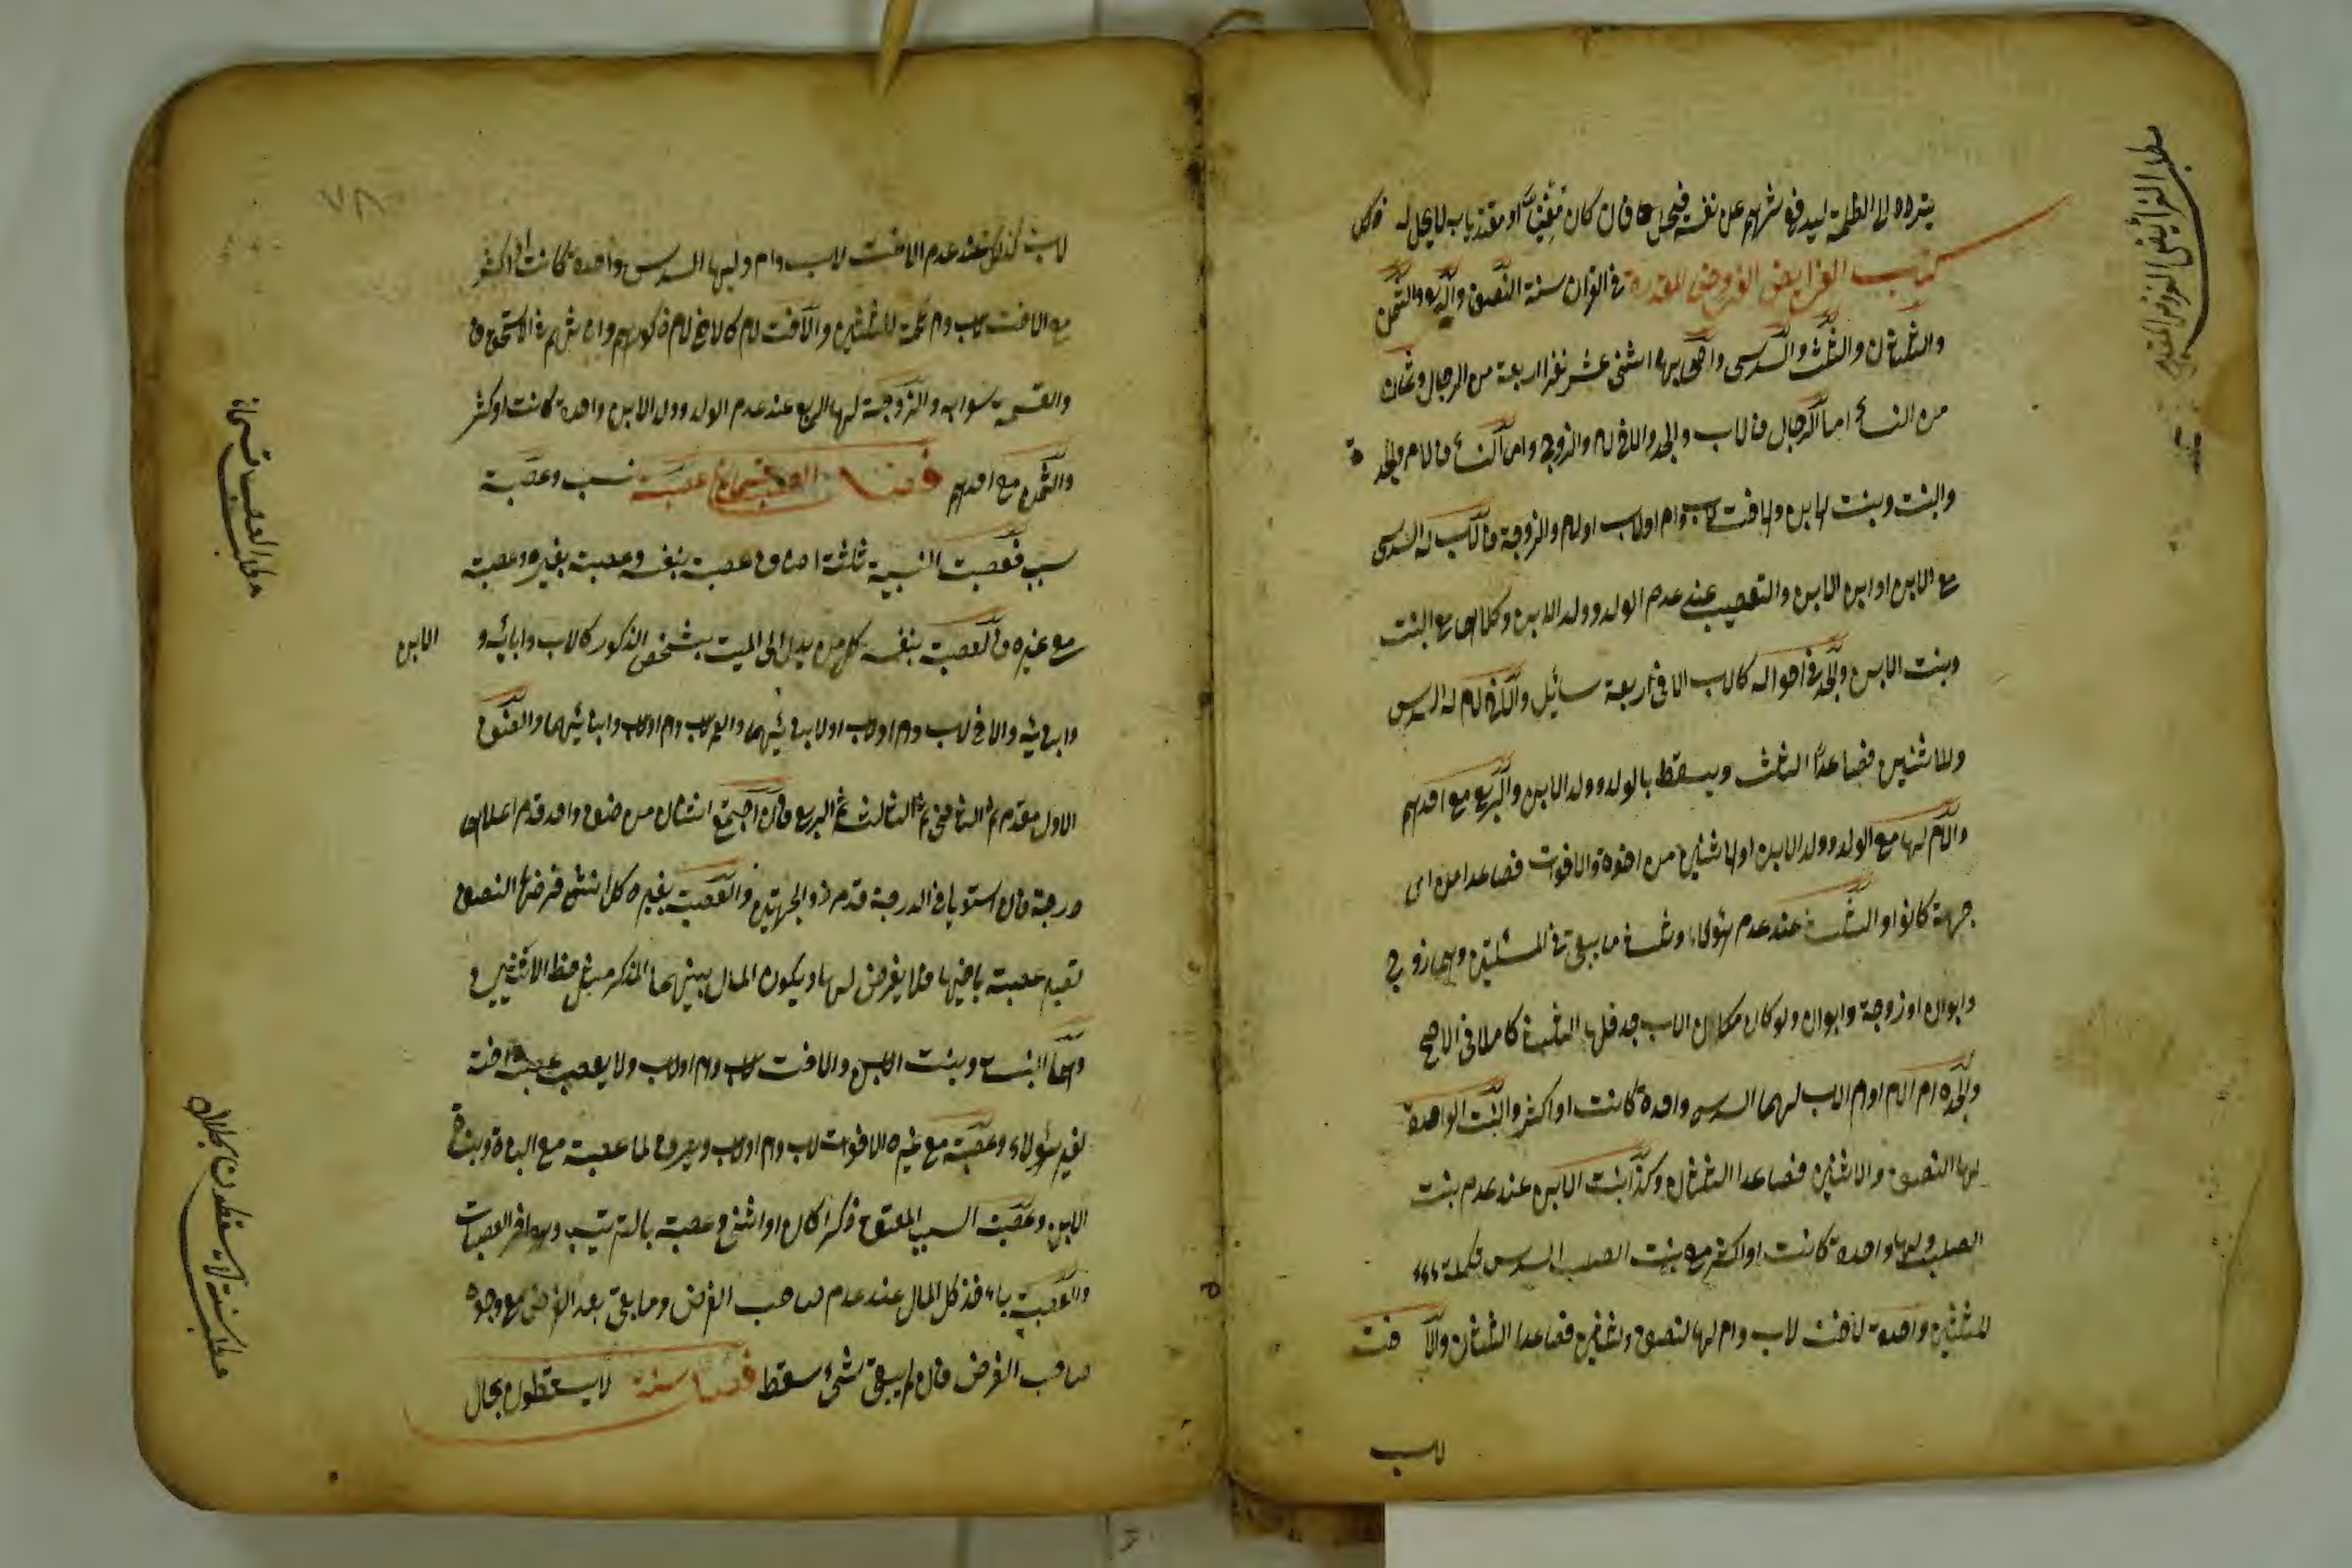 يتردد الى الظلمة ليدفع شرهم عن نفسه فيحل فان كان مفتيا او مقتدا به لا يحل له ذلك
كتاب الفرايض الفروض المقدرة في القران ستة النصف والربع والثمن
والثلثان والثلث والسدس واصحابها اثنى عشر نفرا اربعة من الرجال وثمان
من النساء اما الرجال فالاب والجد والاخ لام والزوج واما النساء فالام والجدة
والبنت وبنت الابن والاخت لاب وام او لاب او لام والزوجة فالاب له السدس
مع الابن او ابن الابن والتعصيب عند عدم الولد وولد الابن وكلاهما مع البنت
وبنت الابن والجد في احواله كالاب الا في اربعة مسائل والاخ لام له السدس
وللاثنين فصاعدا الثلث ويسقط بالولد وولد الابن والربع مع احدهم
والام لها مع الولد وولد الابن او الاثنين من اخوة والاخوات فصاعدا من اى
جهة كانوا والثلث عند عدم هؤلاء وثلث ما يبقى في المسئلتين وهما زوج
وابوان او زوجة وابوان ولو كان مكان الاب جد فلها الثلث كاملا في الاصح
والجدة ام الام او ام الاب لهما السدس واحدة كانت او اكثر والبنت الواحدة
لها النصف والاثنين فصاعدا الثلثان وكذا بنت الابن عند عدم بنت
الصلب ولها واحدة كانت او اكثر مع بنت الصلب السدس تكملة
للثلثين واحدة لاخت لاب وام لها النصف ولثنتين فصاعدا الثلثان والاخت
لاب
مطلب الفرائض الفروض المقدرة
لاب كذلك عند عدم الاخت لاب وام ولها السدس واحدة كانت او اكثر
مع الاخت لاب وام تكملة للثلثين والاخت لام كالاخ لام ذكورهم واناثهم في الاستحقاق
والقسمة سواء والزوجة لها الربع عند عدم الولد وولد الابن واحدة كانت او اكثر
والثمن مع احدهم فصل العصبة قسمان عصبة نسب وعصبة
سبب فعصبة النسبية ثلثة اصناف عصبة بنفسه وعصبة بغيره وعصبة
مع غيره فالعصبة بنفسه كل من يدلى الى الميت بشخص الذكور كالاب وابائه و الابن
وابنائه والاخ لاب وام او لاب او لابنائهما والعم لاب وام او لاب وابنائهما والمعتق
الاول مقدم ثم الثاني ثم الثالث ثم الرابع فان اجتمع اثنان من صنف واحد قدم اعلاهما
درجة فان استويا في الدرجة قدم ذو الجهتين والعصبة بغيره كل انثى فرضها النصف
تصير عصبة باخيها فلا يفرض لها ويكون المال بينهما للذكر مثل حظ الانثيين
وهما البنت وبنت الابن والاخت لاب وام او لاب ولا يعصب عصبة اخته
لغير هؤلاء وعصبة مع غيره الاخوات لاب وام او لاب ويصرفا لما عصبة مع البنات وبنات
الابن وعصبة السبب المعتق ذكرا كان او انثى وعصبة بالترتيب وهو اخر العصبات
والعصبة ياخذ كل المال عند عدم صاحب الفرض وما بقى بعد الفرض مع وجوه
صاحب الفرض فان لم يبق شئ سقط فصل ستة لا يسقطون بحال
مطلب العصبات قسمان
مطلب ستة لا يسقطون بحال
٧٨